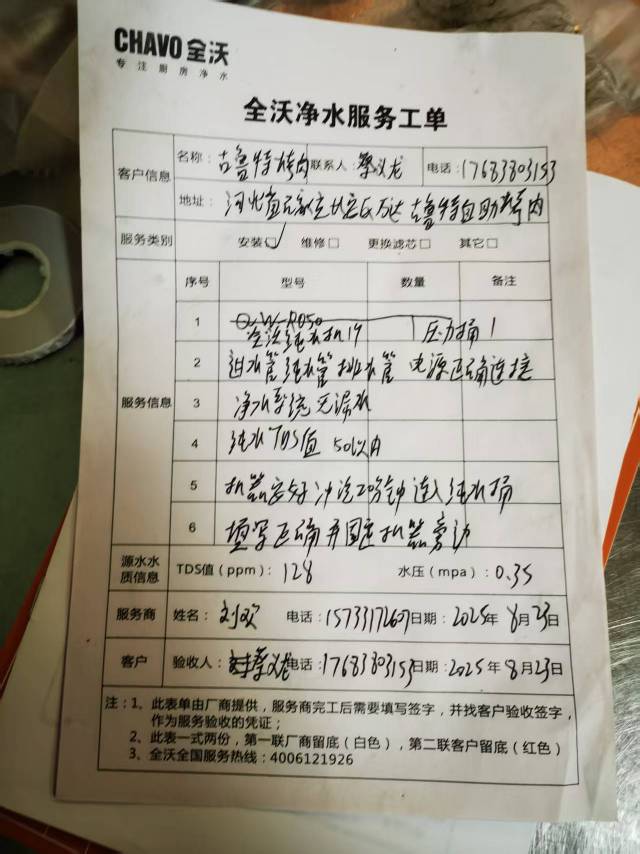 CHAVO 全沃
专注厨房净水
全沃净水服务工单
客户信息 名称：古鲁特烤肉 联系人：蔡义龙 电话：17683803153
地址：河北省石家庄长安区万达古鲁特自助烤肉
服务类别 安装☑ 维修□ 更换滤芯□ 其它□
服务信息 序号 型号 数量 备注
1 全沃纯水机1个 压力桶1
2 进水管纯水管排水管 电源正确连接
3 净水系统无漏水
4 纯水TDS值 50以内
5 机器安好冲洗20分钟连入纯水桶
6 填写正确并固定机器旁边
源水水质信息 TDS值（ppm）：128 水压（mpa）：0.35
服务商 姓名：刘欢 电话：15733172607 日期：2025年8月23日
客户 验收人：蔡义龙 电话：17683803153 日期：2025年8月23日
注：1、此表单由厂商提供，服务商完工后需要填写签字，并找客户验收签字，
作为服务验收的凭证；
2、此表一式两份，第一联厂商留底（白色），第二联客户留底（红色）
3、全沃全国服务热线：4006121926